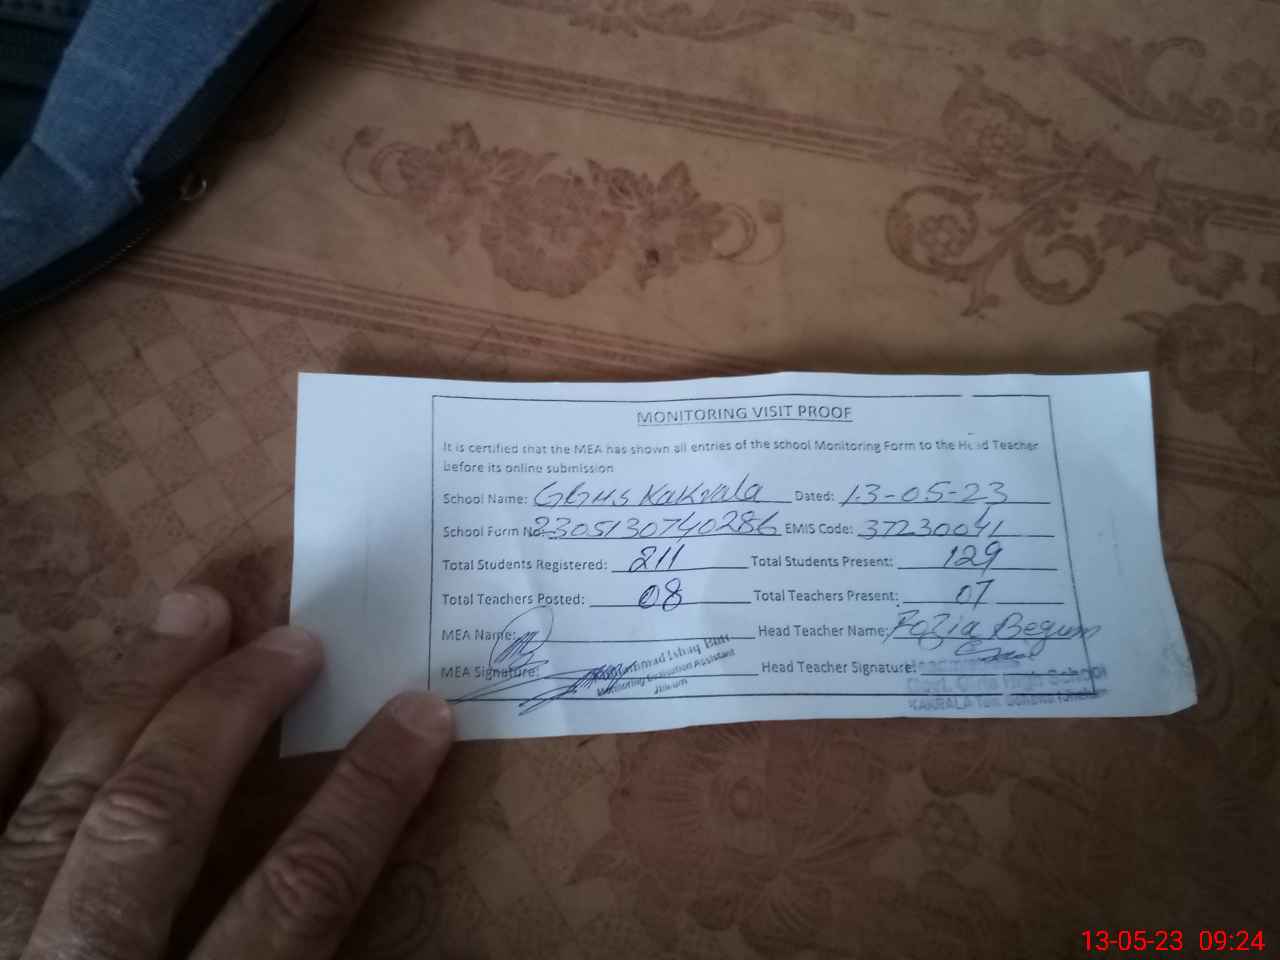 MONITORING VISIT PROOF
It is certified that the MEA has shown all entries of the school Monitoring Form to the Head Teacher
before its online submission
School Name: GGHS Kakrala Dated: 13-05-23
School Form No: 2305130740286 EMIS Code: 37230041
Total Students Registered: 211 Total Students Present: 129
Total Teachers Posted: 08 Total Teachers Present: 07
MEA Name: Head Teacher Name: Fozia Begum
MEA Signature: Muhammad Ishaq Butt Head Teacher Signature:
Monitoring Evaluation Assistant
Jhelum
Govt. Girls High School
KAKRALA
13-05-23 09:24